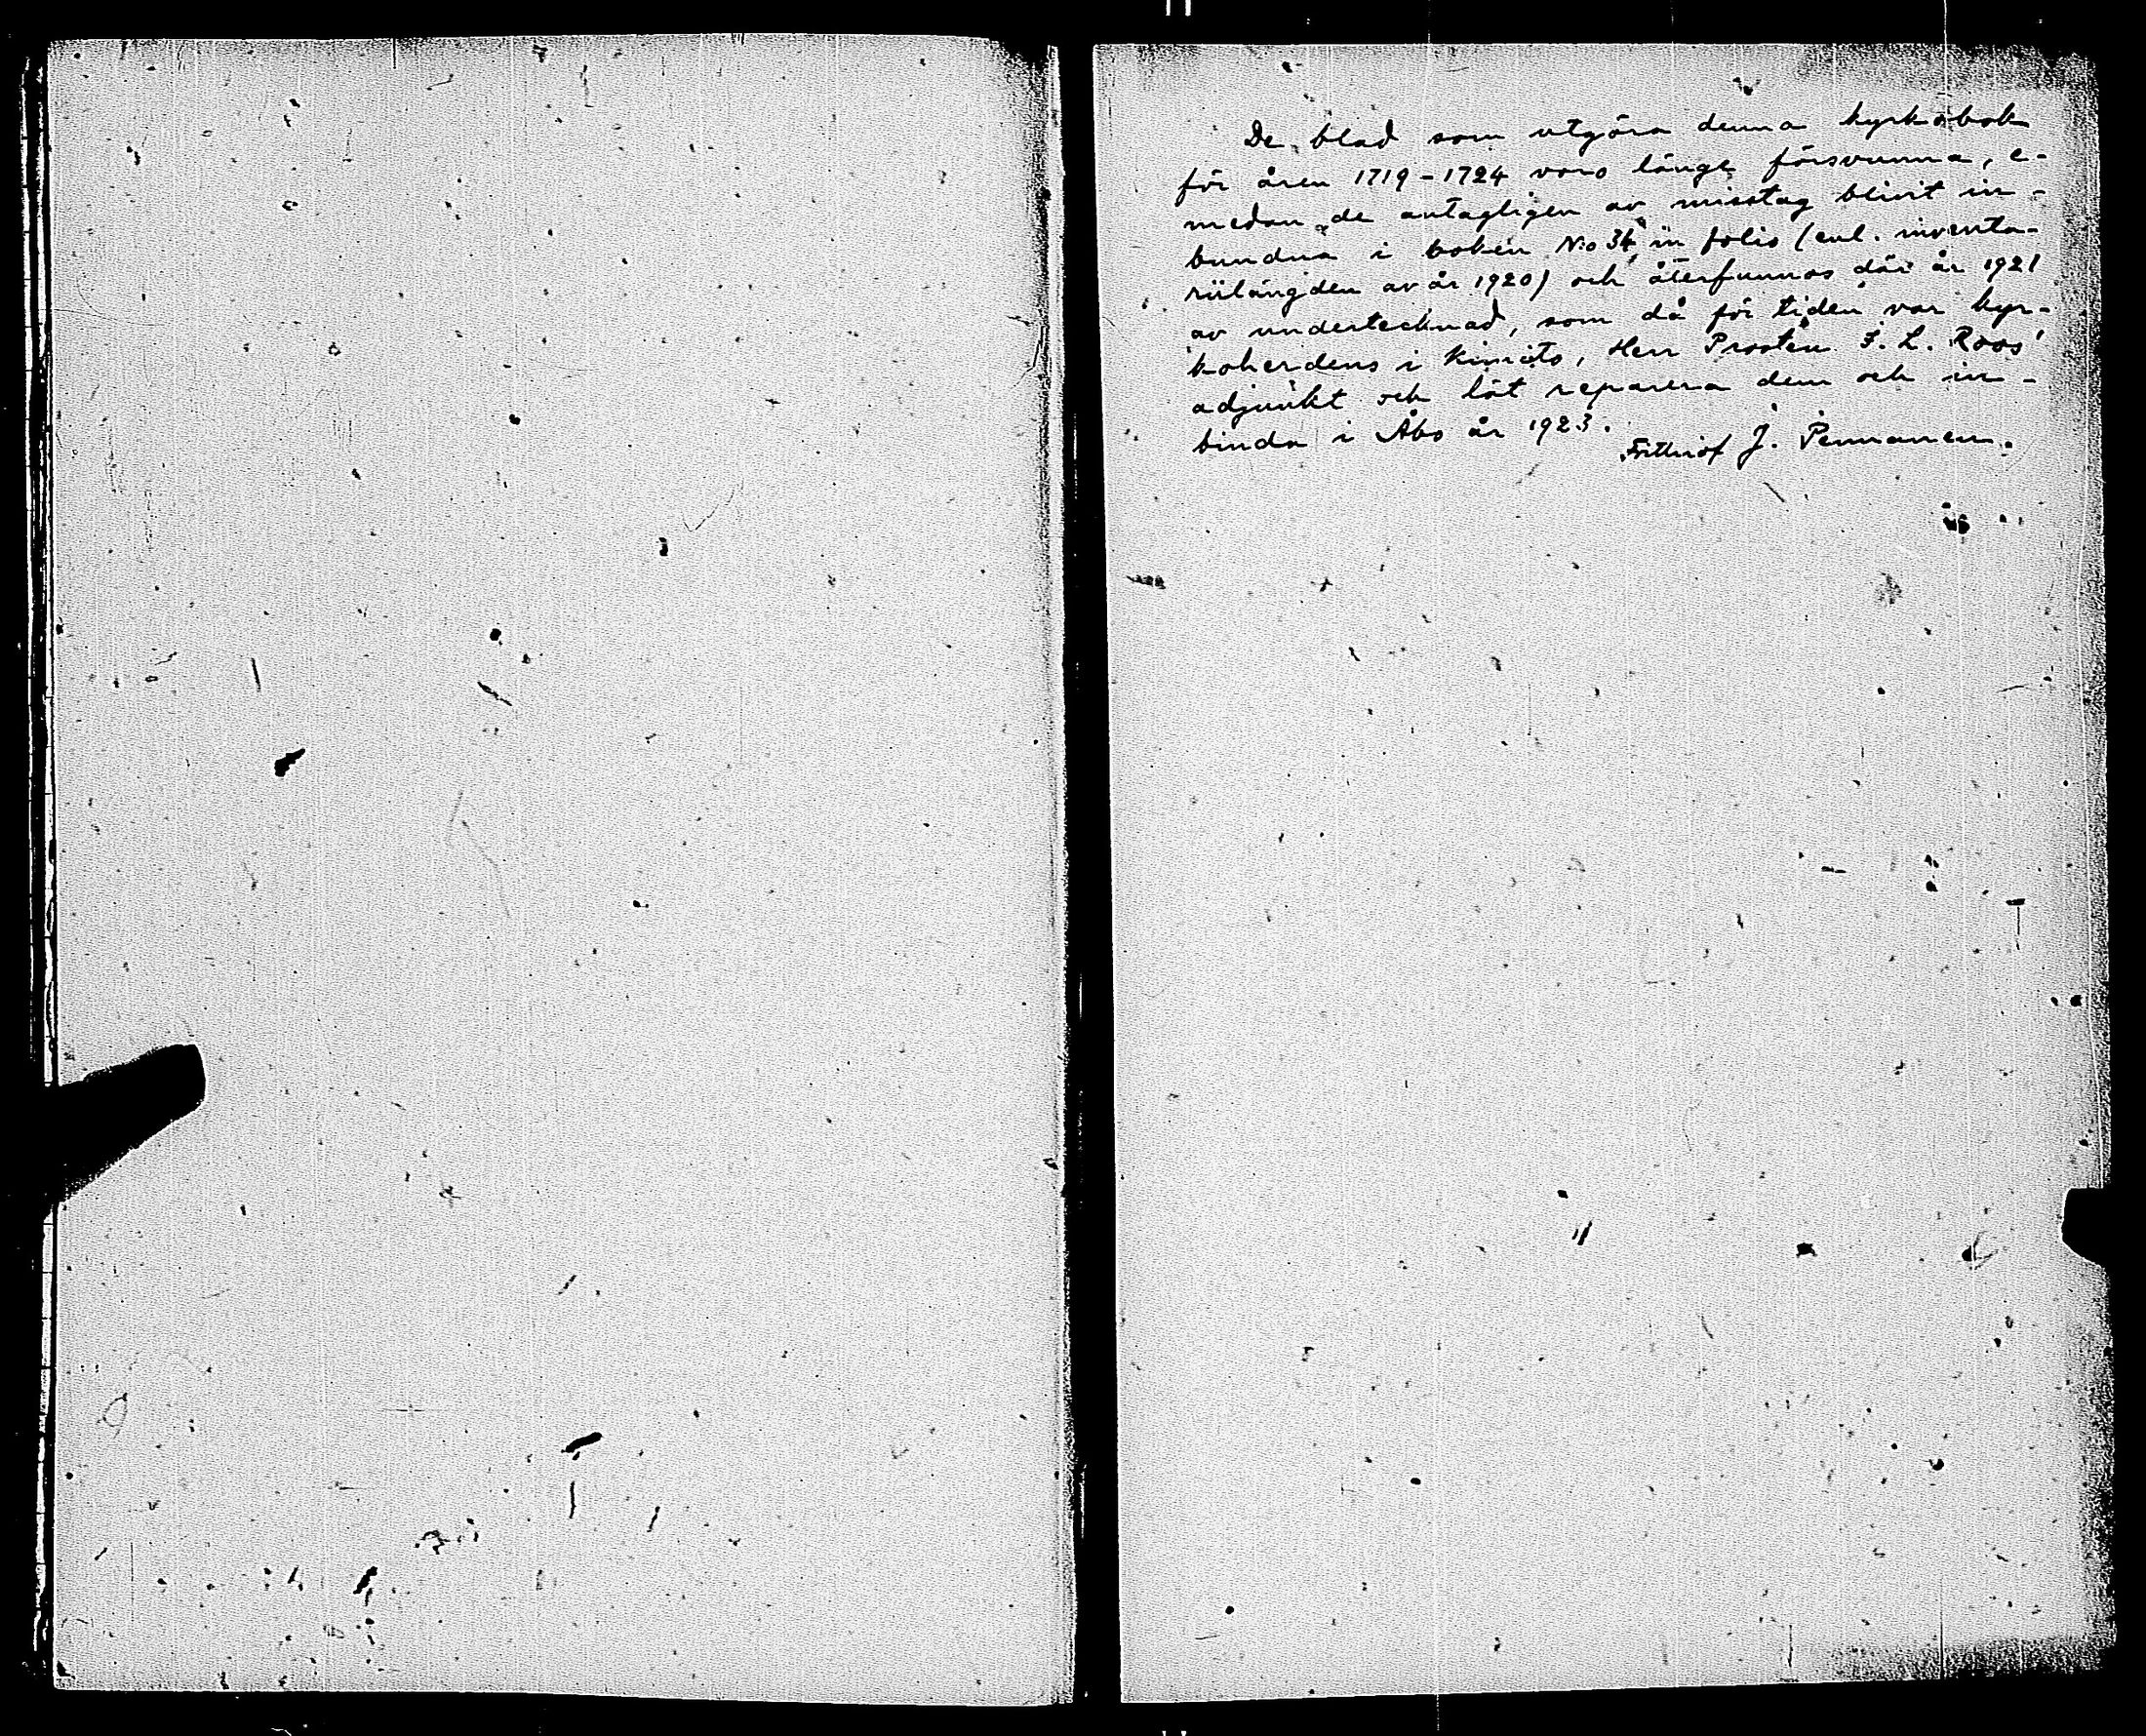 De blad som utgöra denna kyrkobok
för åren 1719-1724 voro länge försvunna, e-
medan de antagligen av misstag blivit in-
bundna i boken No 34 in folio (enl. inventa-
riilängden av år 1920) och återfunnos där år 1921
av undertecknad, som då för tiden var kyr-
koherdens i Kimito, Herr Prosten F. L. Roos'
adjunkt och lät reparera dem och in-
binda i Åbo år 1923.
Frithiof J. Pennanen.